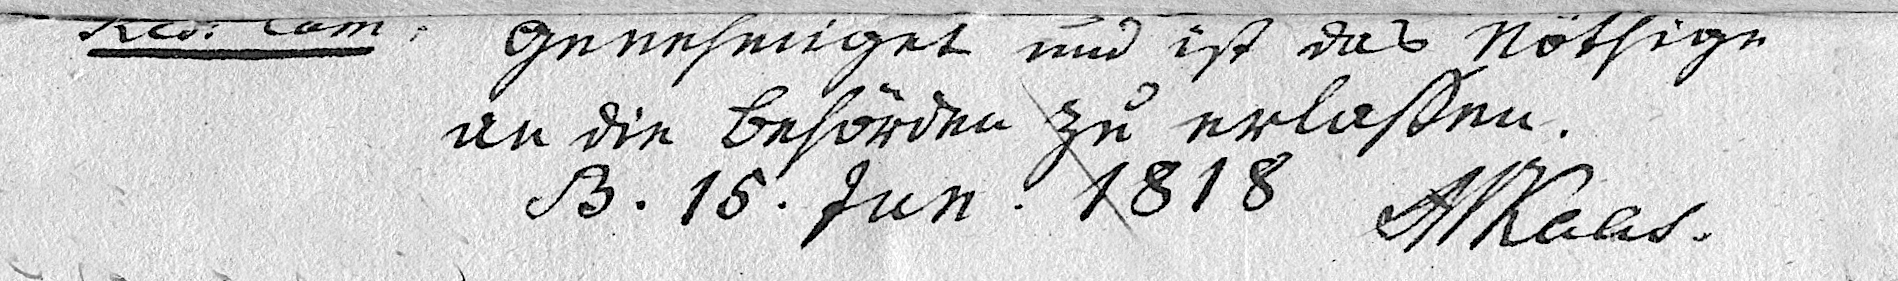 Res. Cam. Genehmiget und ist das Nöthige
an die Behörden zu erlaßen.
B. 15. Jun. 1818